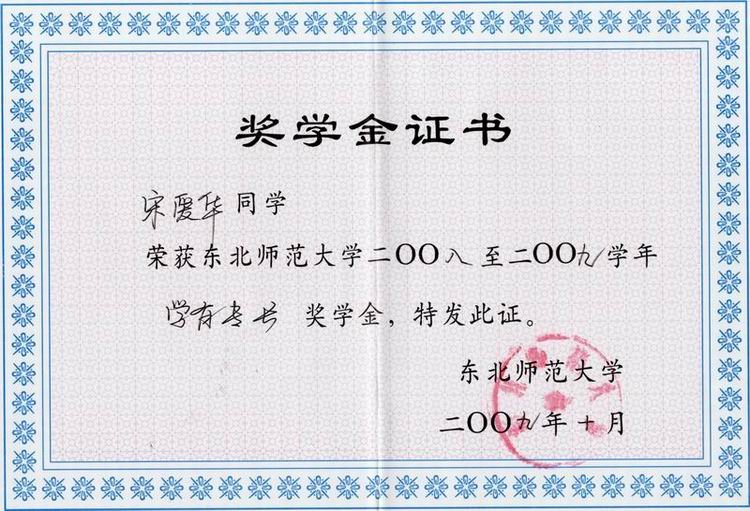 奖学金证书
宋爱华同学
荣获东北师范大学二〇〇八至二〇〇九学年
学有专长 奖学金，特发此证。
东北师范大学
二〇〇九年十月